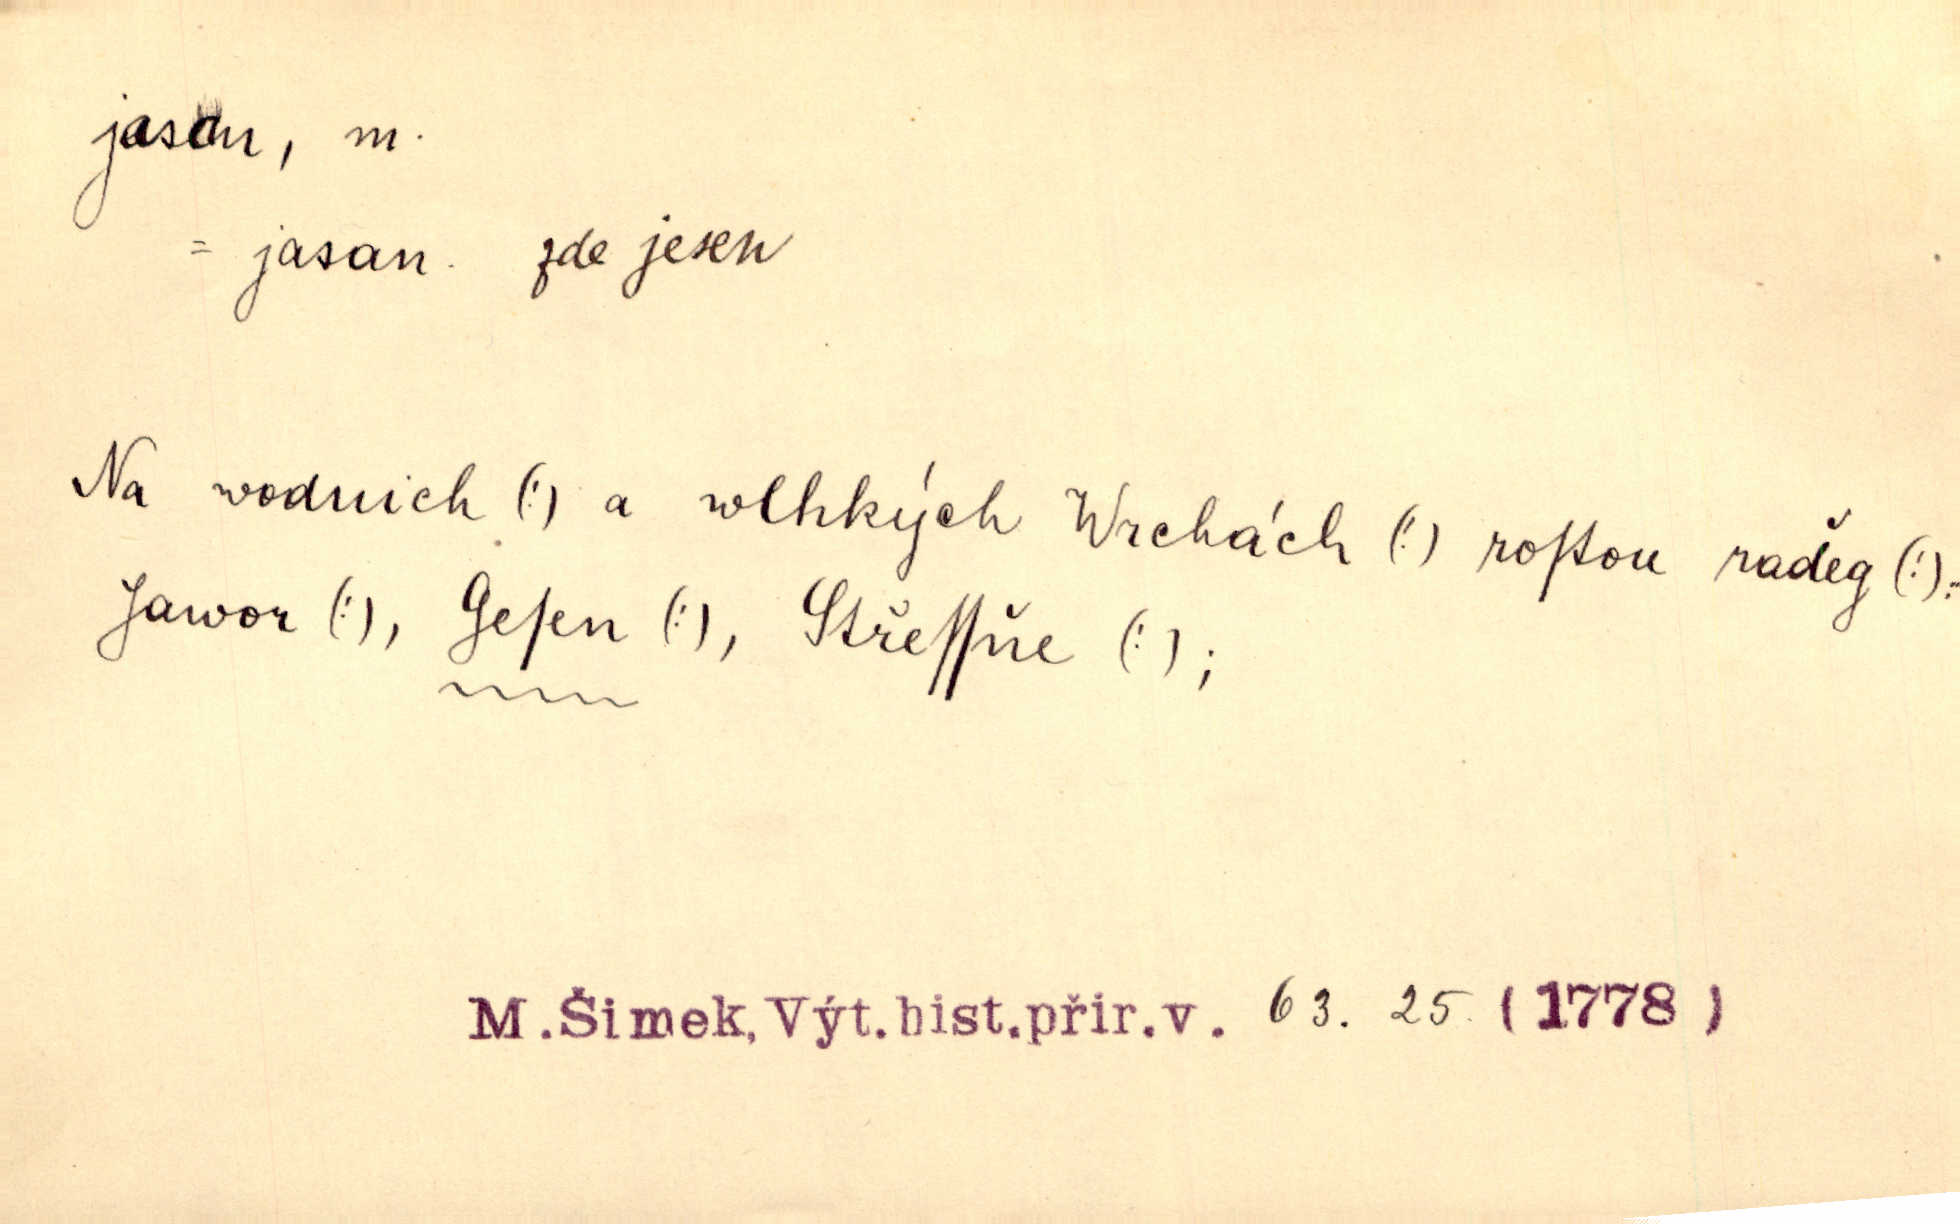 jasan, m.
= jasan. zde jesen
Na wodnich (!) a wlhkých Wrchách (!) roſtou raděg (!):
Jawor (!), Geſen (!), Střeſſňe (!);
M.Šimek, Výt.hist.přir.v. 63. 25. (1778)